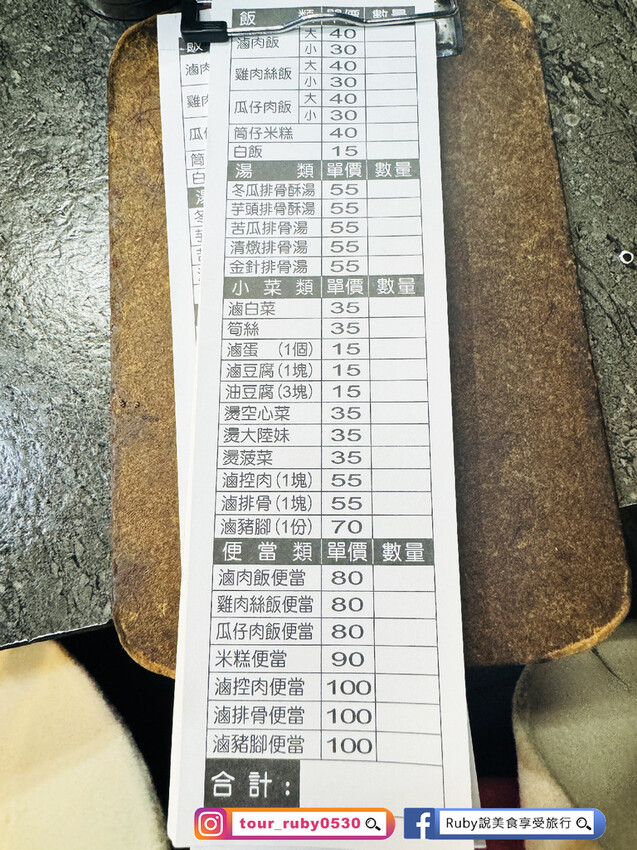 飯類 單價 數量
滷肉飯 大 40
小 30
雞肉絲飯 大 40
小 30
瓜仔肉飯 大 40
小 30
筒仔米糕 40
白飯 15
湯類 單價 數量
冬瓜排骨酥湯 55
芋頭排骨酥湯 55
苦瓜排骨湯 55
清燉排骨湯 55
金針排骨湯 55
小菜類 單價 數量
滷白菜 35
筍絲 35
滷蛋 (1個) 15
滷豆腐(1塊) 15
油豆腐(3塊) 15
燙空心菜 35
燙大陸妹 35
燙菠菜 35
滷控肉(1塊) 55
滷排骨(1塊) 55
滷豬腳(1份) 70
便當類 單價 數量
滷肉飯便當 80
雞肉絲飯便當 80
瓜仔肉飯便當 80
米糕便當 90
滷控肉便當 100
滷排骨便當 100
滷豬腳便當 100
合計:
tour_ruby0530
Ruby說美食享受旅行